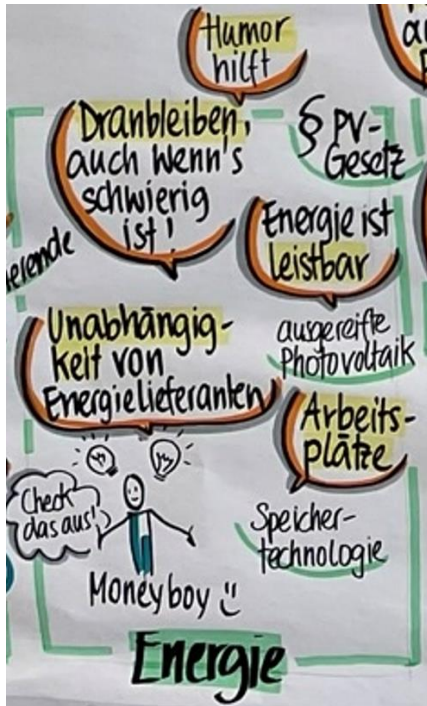 Humor
hilft
Dranbleiben,
auch wenn's
schwierig
ist!
§ PV-
Gesetz
Energie ist
leistbar
Unabhängig-
keit von
Energielieferanten
ausgereifte
Photovoltaik
Arbeits-
plätze
Check
das aus!
Speicher-
technologie
Moneyboy
Energie